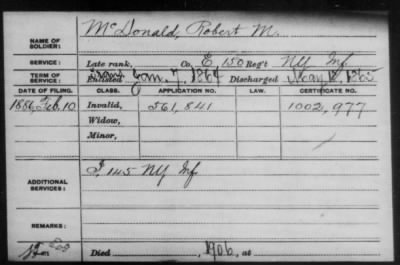 NAME OF SOLDIER: McDonald, Robert M.
SERVICE: Late rank, Co. E, 150 Reg't NY Inf
TERM OF SERVICE: Enlisted Jan. 7, 1864 Discharged 1865
DATE OF FILING. CLASS. APPLICATION NO. LAW. CERTIFICATE NO.
1886, Feb. 10 Invalid, 561,841 1002,977
Widow,
Minor,
ADDITIONAL SERVICES: I 145 NY Inf
REMARKS:
Died , 1906, at